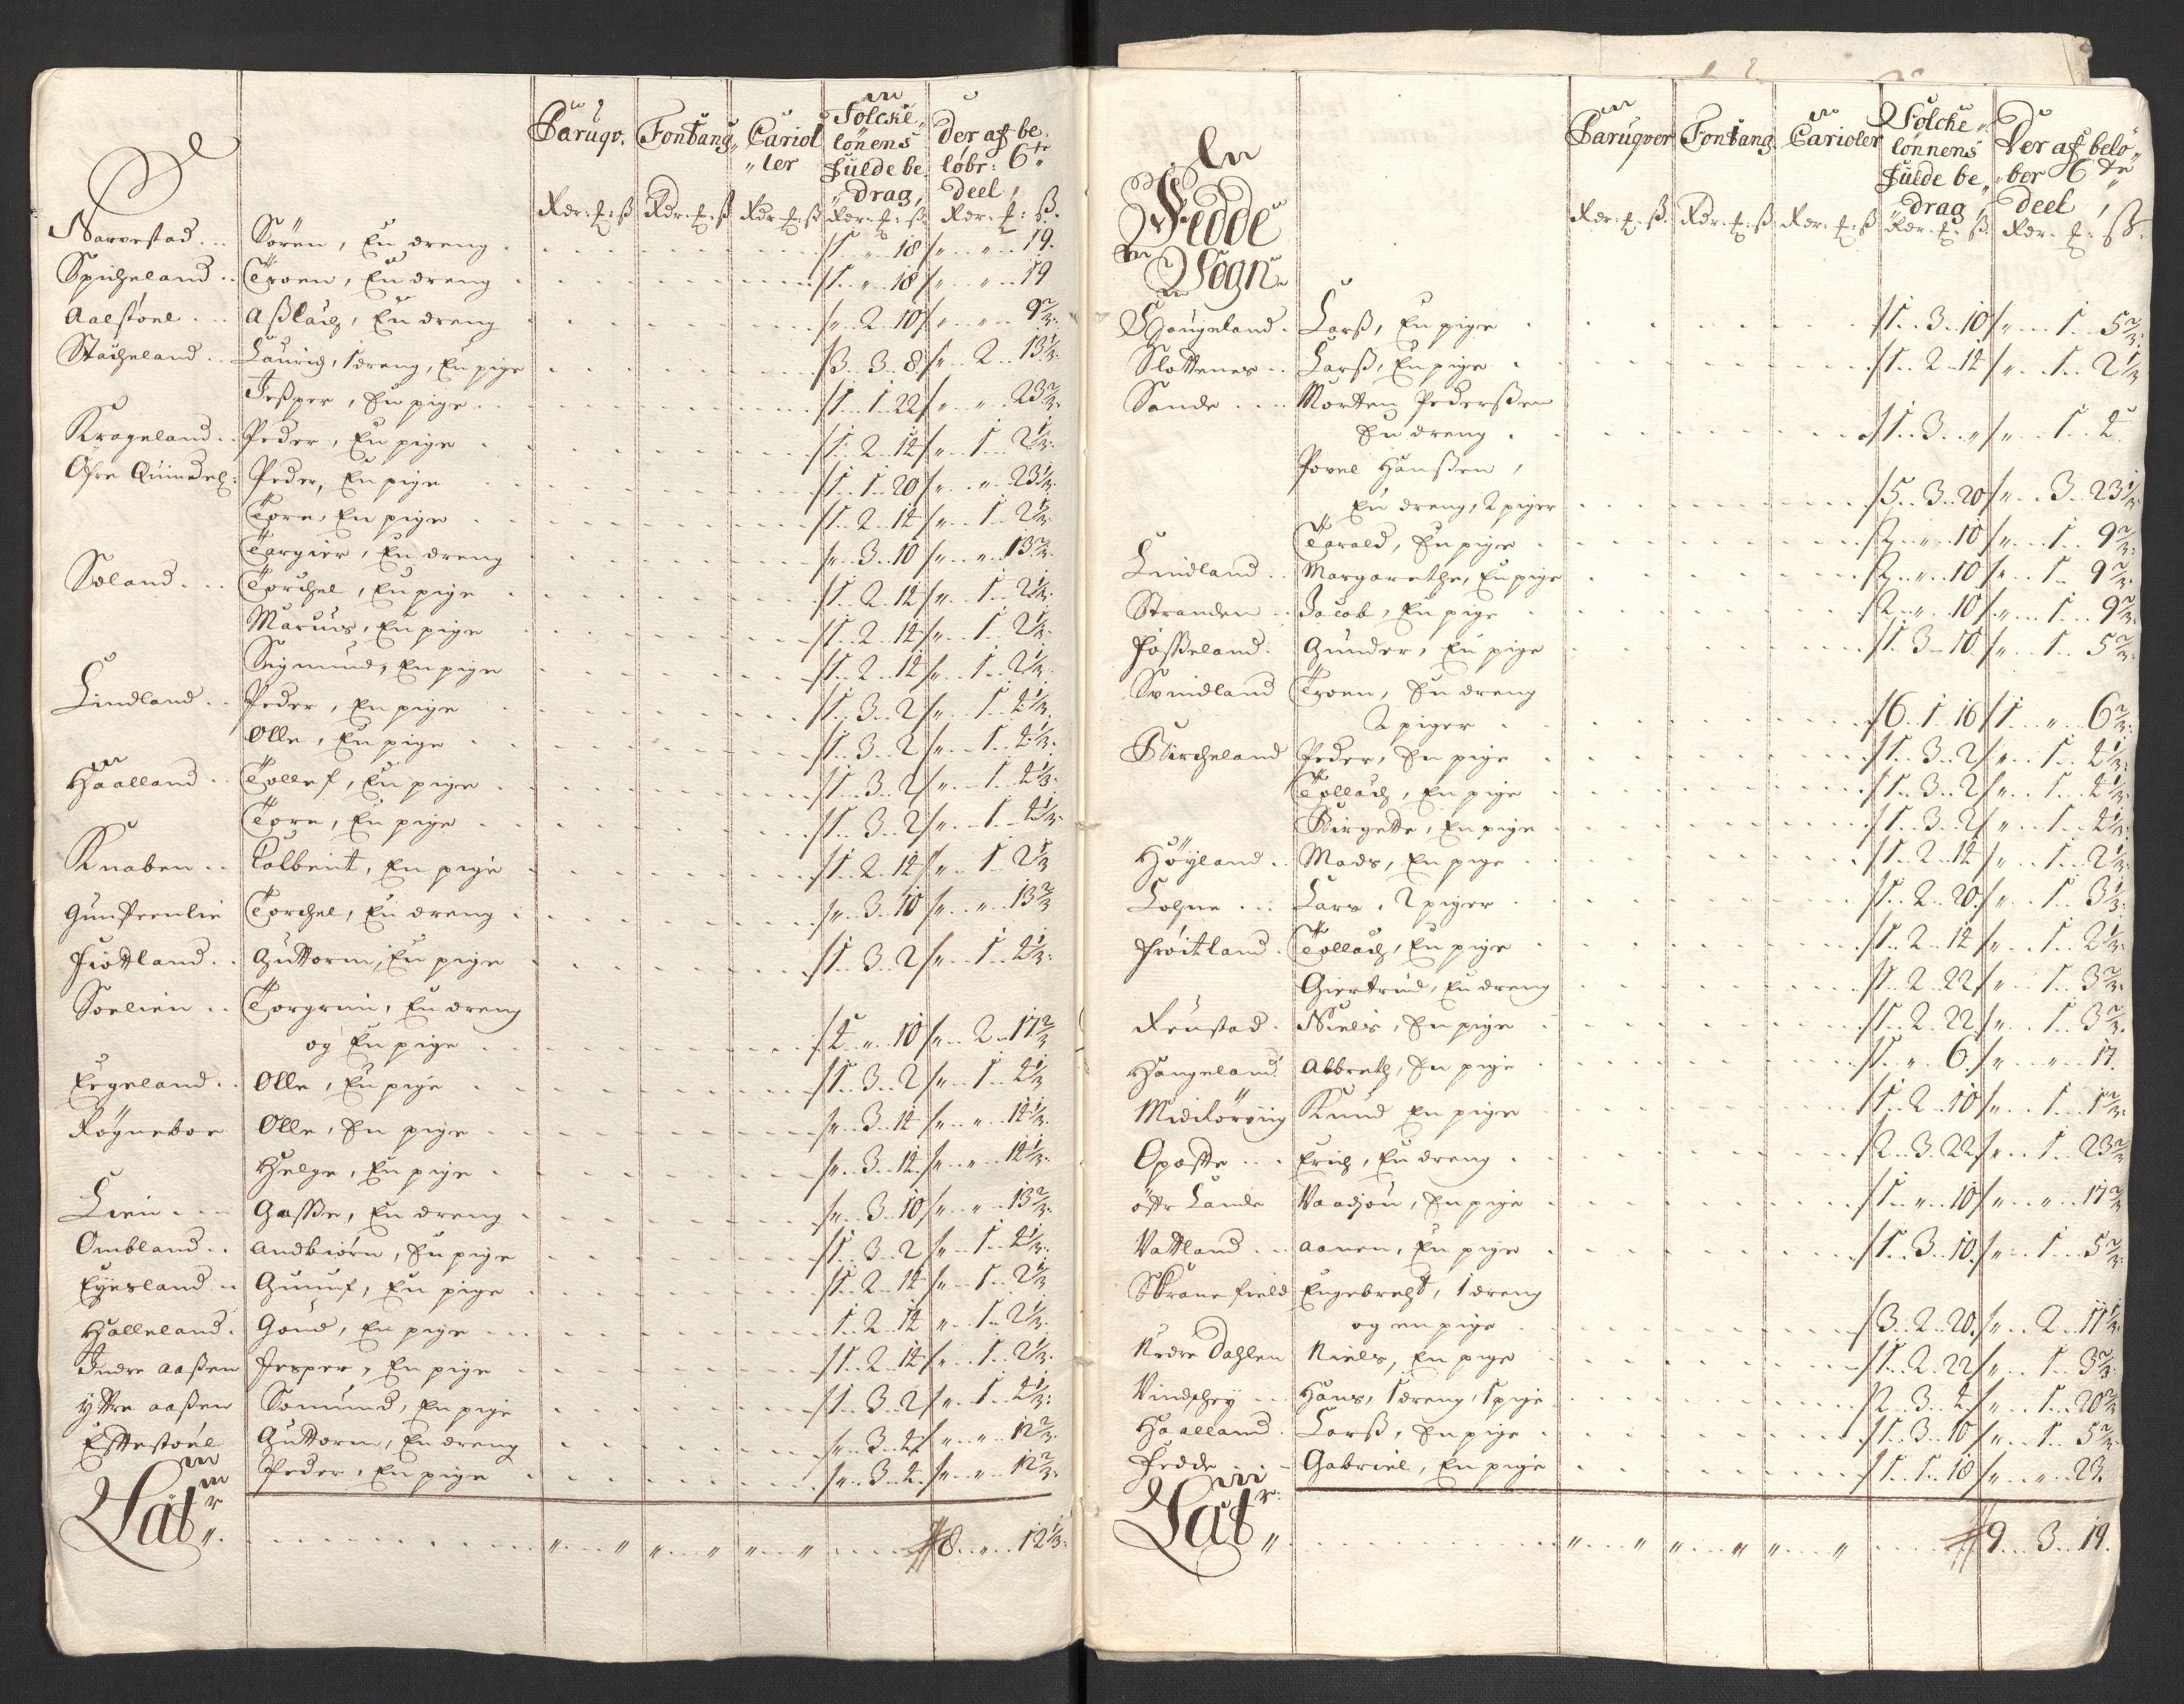 Paruqv. Fontang, Cariol „ler Folcke„ lönens fulde be„ drag, Der af be„ løbr: 6te deel,
Rdr. £: ß Rdr. £: ß Rdr £: ß Rdr. £: ß. Rdr. £: ß.
Narvestad... Sören, En dreng . . . /1 „ 18 /„ „ 19.
Spicheland .. Troen, En dreng . . . /1. „ 18 /„ „ 19
Aalstöel ... Aßlach, En dreng . . . /„. 2. 10 /„ „ 9⅔.
Stacheland .. Lauriz, 1 dreng, En pige . . . /3. 3. 8 /„. 2. 13⅓.
Jeßper, En pige . . . /1. 1. 22 /„ „ 23⅔.
Krageland .. Peder, En pige . . . /1. 2. 14 /„. 1. 2⅓.
Øfre Quindesl: Peder, En pige . . . /1. 1. 20 /„. „. 23⅓.
Tore, En pige . . . /1. 2. 14 /„. 1. 2⅓.
Targier, En dreng . . . /„. 3. 10 /„. „. 13⅔.
Søland ... Torchel, En pige . . . /1. 2. 14 /„. 1. 2⅓.
Marcus, En pige . . . /1. 2. 14 /„. 1. 2⅓.
Sigmund, En pige . . . /1. 2. 14 /„. 1. 2⅓.
Lindland .. Peder, En pige . . . /1. 3. 2 /„. 1. 4⅓.
Olle, En pige . . . /1. 3. 2 /„. 1. 4⅓.
Haalland .. Tollef, En pige . . . /1. 3. 2 /„. 1. 4⅓.
Tore, En pige . . . /1. 3. 2 /„. 1. 4⅓.
Knaben .. Tolbent, En pige . . . /1. 2. 14 /„. 1. 2⅓
Gunstenlie Torchel, En dreng . . . /„. 3. 10 /„. „. 13⅔
Fiotland .. Guttorm, En pige . . . /1. 3. 2 /„. 1. 4⅓.
Soelien .. Torgrim, En dreng
og En pige . . . /4. „. 10 /„. 2. 17⅔
Eegeland .. Olle, En pige . . . /1. 3. 2 /„. 1. 4⅓
Röyneboe Olle, En pige . . . /„. 3. 14 /„. „. 14⅓.
Helge, En pige . . . /„. 3. 14 /„. „. 14⅓.
Lien ... Gasse, En dreng . . . /„. 3. 10 /„. „. 13⅔.
Ombland .. Andbiörn, En pige . . . /1. 3. 2 /„. 1. 4⅓.
Eyesland .. Gunuf, En pige . . . /1. 2. 14 /„. 1. 2⅓
Halleland . Goud, En pige . . . 1. 2. 14 „. 1. 2⅓.
Indre Aaßen Jesper, En pige . . . /1. 2. 14 /„. 1. 2⅓.
Yttre Aaßen Somund, En pige . . . /1. 3. 2 /„. 1. 4⅓.
Eftestöel Guttorm, En dreng . . . /„. 3. 4 /„. „. 12⅔.
Peder, En pige . . . /„. 3. 4. /„. „. 12⅔.
Lat r „ . . . „ „ „ „ „ „ . . . 8. „. 12⅓.
Paruqver Fontang. Carioler Folcke„ lönnens fulde be„ drag, Der af belö„ ber 6te deel,
Rdr. £. ß. Rdr. £: ß Rdr. £: ß Rdr. £: ß. Rdr. £: ß.
En
Fedde
Sogn.
Haugeland . Larß, En pige . . . /1. 3. 10 /„. 1. 5⅔.
Slottenes .. Larß, En pige . . . /1. 2. 14 /„. 1. 2⅓
Sande ... Morten Pederßen
En dreng . . . /1. 3. „ /„. 1. 4.
Povel Hanßen,
En dreng, 2 piger . . . /5. 3. 20 /„. 3. 23⅓.
Tarald, En pige . . . /2. „. 10 /„. 1. 9⅔.
Lindland .. Margarethe, En pige . . . /2. „. 10 /„. 1. 9⅔.
Stranden .. Jacob, En pige . . . /2. „. 10 /„. 1. 9⅔.
Fosseland . Gunder, En pige . . . /1. 3. 10 /„. 1. 5⅔.
Svindland Troen, En dreng
2 piger . . . /6. 1. 16 /1. „. 6⅔.
Kircheland Peder, En pige . . . /1. 3. 2 /„. 1. 4⅓.
Tollach, En pige . . . /1. 3. 2 /„. 1. 4⅓.
Birgette, En pige . . . /1. 3. 2 /„. 1. 4⅓.
Höyland .. Mads, En pige . . . /1. 2. 14 /„. 1. 2⅓.
Lohne ... Lars, 2 piger . . . /1. 2. 20 /„. 1. 3⅓.
Fröitland . Tollach, En pige . . . /1. 2. 14 /„. 1. 2⅓.
Giertrud, En dreng . . . /1. 2. 22 /„. 1. 3⅔.
Refustad . Niels, En pige . . . /1. 2. 22 /„. 1. 3⅔.
Hangeland Abbreth, En pige . . . /1. „. 6. /„. „. 17.
Midtörviig Knud En pige . . . /1. 2. 10 /„. 1. 1⅔.
Opofte ... Erich, En dreng . . . /2. 3. 22 /„. 1. 23⅔
öftr Lande Vaadjon, En pige . . . /1. „. 10 /„. „. 17⅔
Vattland .. Aanen, En pige . . . /1. 3. 10. /„. 1. 5⅔.
Skranefield Engebreht, 1 dreng
og en pige . . . /3. 2. 20. /„. 2. 11⅓.
Nedre Dahlen Niels, En pige . . . /1. 2. 22 /„. 1. 3⅔.
Vindschey .. Hans, 1 dreng, 1 pige . . . /2. 3. 4. /„. 1. 20⅔
Haalland . Larß, En pige . . . /1. 3. 10 /„. 1. 5⅔.
Fedde ... Gabriel, En pige . . . /1. 1. 18 /„. „. 23.
Lat r: „ . . . „ „ „ „ „ „ . . . 9. 3. 19.